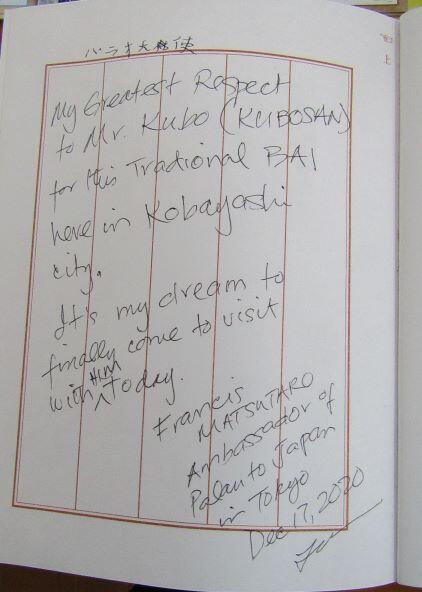 パラオ大使
My Greatest Respect
to Mr. Kubo (KUBOSAN)
for this Tradional BAI
here in Kobayashi
city.
It's my dream to
finally come to visit
with HIM today.
Francis
MATSUTARO
Ambassador of
Palau to Japan
in Tokyo
Dec 17, 2020